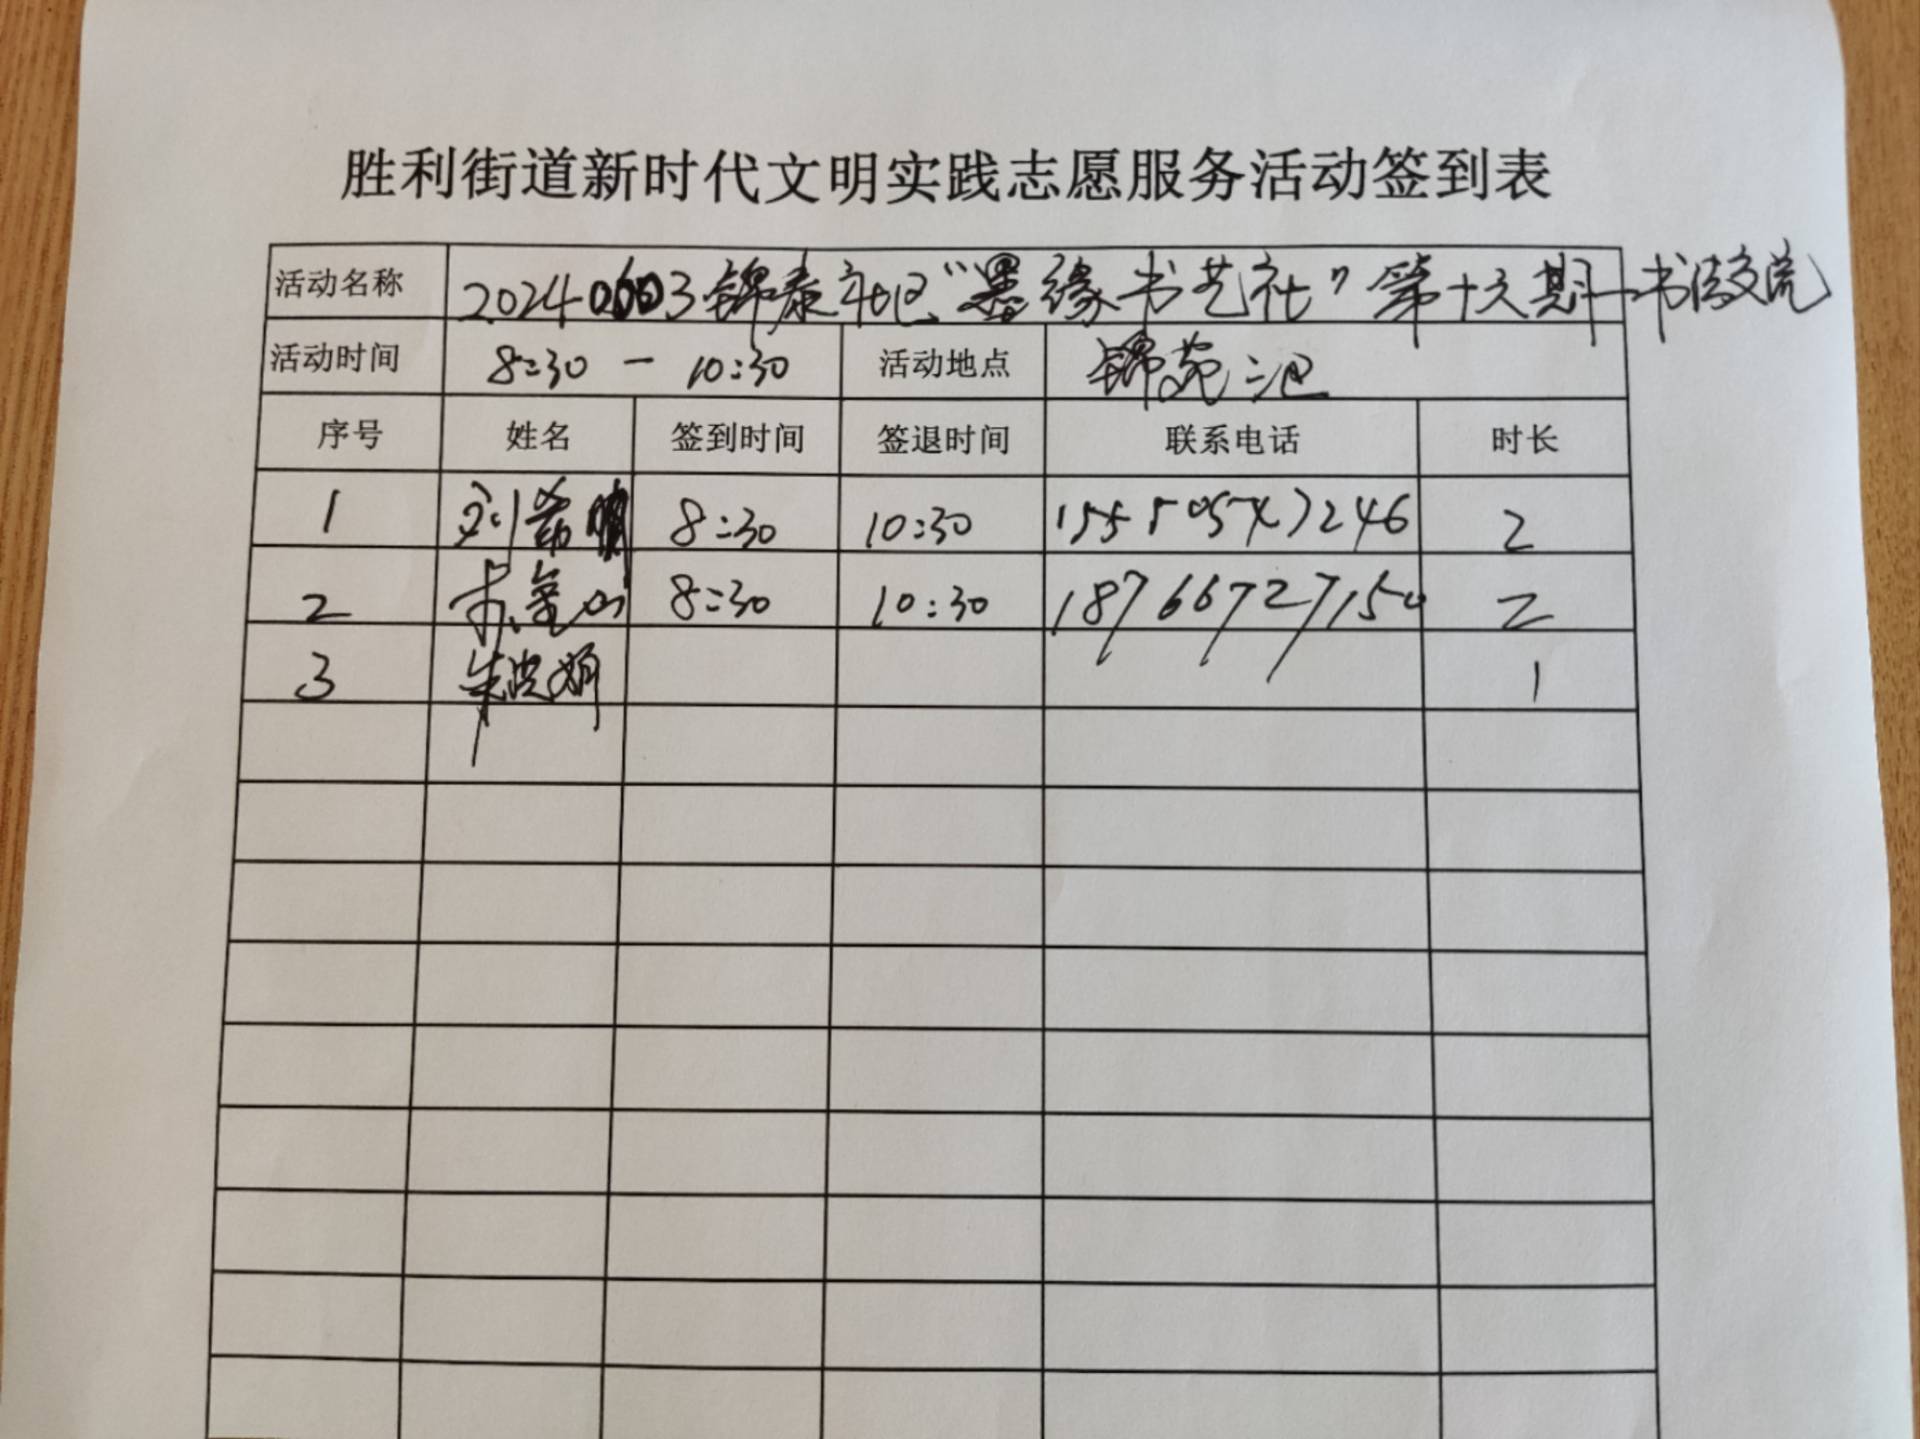 胜利街道新时代文明实践志愿服务活动签到表
活动名称 20240603锦泰社区“墨缘书艺社”第十六期—书法交流
活动时间 8:30 — 10:30 活动地点 锦苑二区
序号 姓名 签到时间 签退时间 联系电话 时长
1 刘希明 8:30 10:30 2
2 金山 8:30 10:30 18766727150 2
3 朱 娟 1